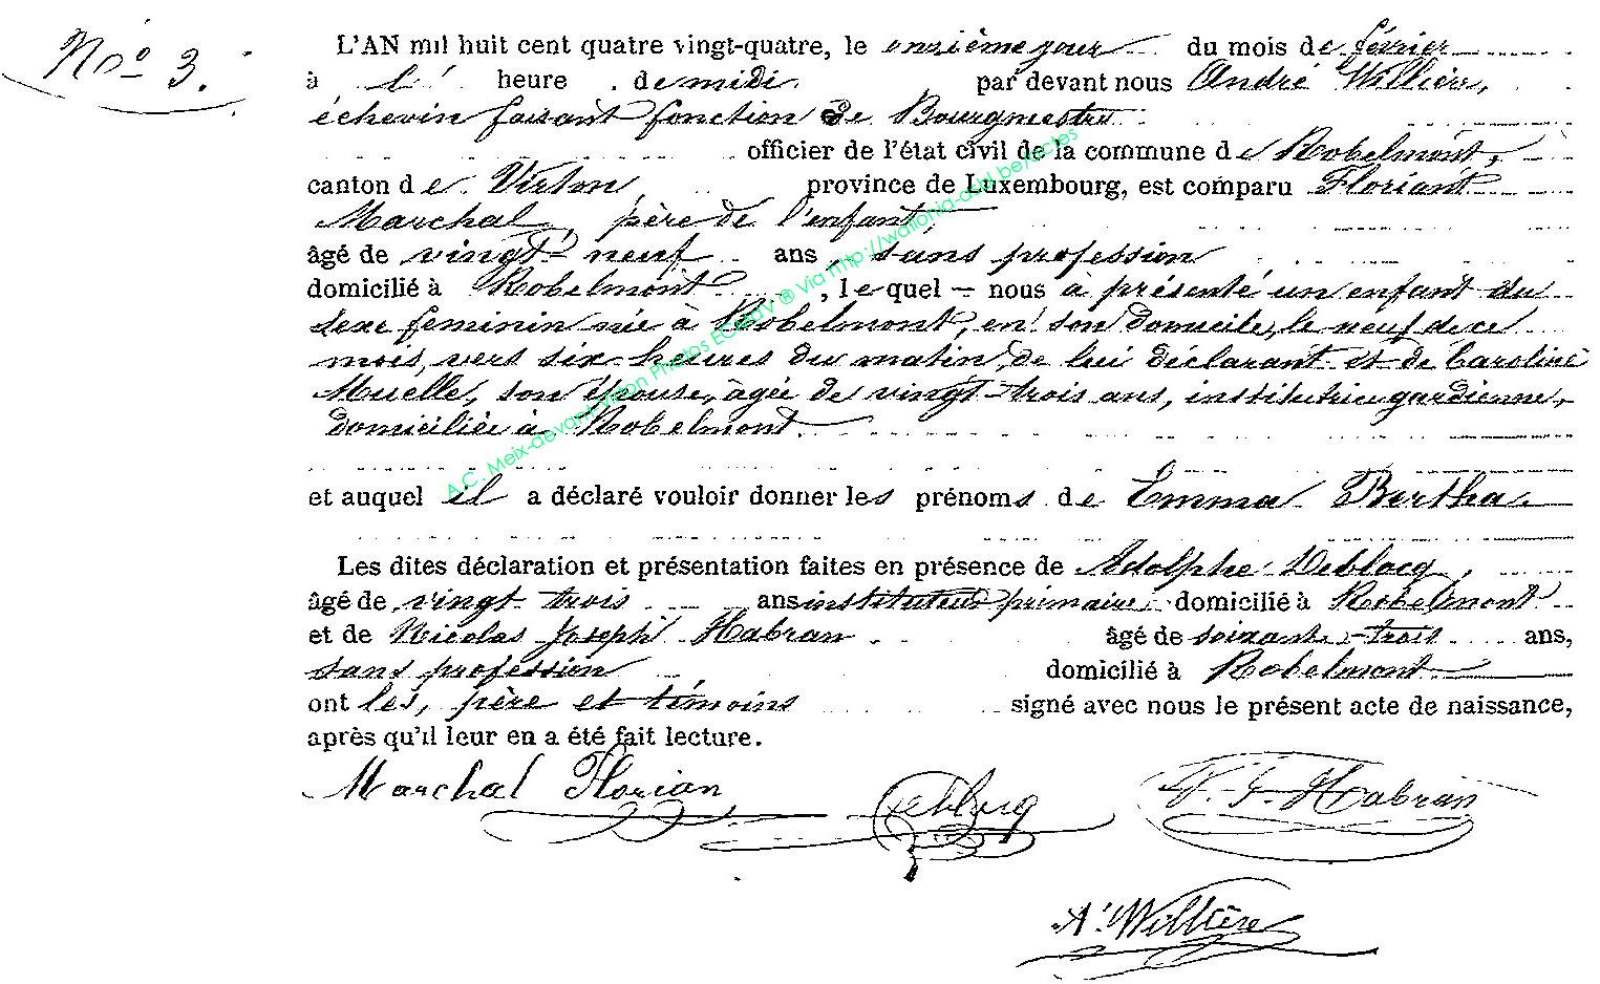 Nº 3.
L'AN mil huit cent quatre vingt-quatre, le onzième jour du mois de février
à l' heure de midi par devant nous André Willière,
échevin faisant fonction de Bourgmestre
officier de l'état civil de la commune de Robelmont,
canton de Virton, province de Luxembourg, est comparu Floriant
Marchal, père de l'enfant,
âgé de vingt-neuf ans, sans profession
domicilié à Robelmont, lequel nous à présenté un enfant du
sexe feminin née à Robelmont, en son domicile, le neuf de ce
mois, vers six heures du matin, de lui déclarant et de Caroline
Muelle, son épouse, âgée de vingt-trois ans, institutrice gardienne,
domiciliée à Robelmont.
et auquel il a déclaré vouloir donner les prénoms de Emma Bertha.
Les dites déclaration et présentation faites en présence de Adolphe Deblocq,
âgé de vingt trois ans instituteur primaire domicilié à Robelmont
et de Nicolas Joseph Habran âgé de soixante-trois ans,
sans profession domicilié à Robelmont
ont les, père et témoins signé avec nous le présent acte de naissance,
après qu'il leur en a été fait lecture.
Marchal Florian Deblocq N. J. Habran
A. Willière
A.C. Meix-devant-Virton Photos ECGGdV ® Via http://wallonia-asbl.be/actes